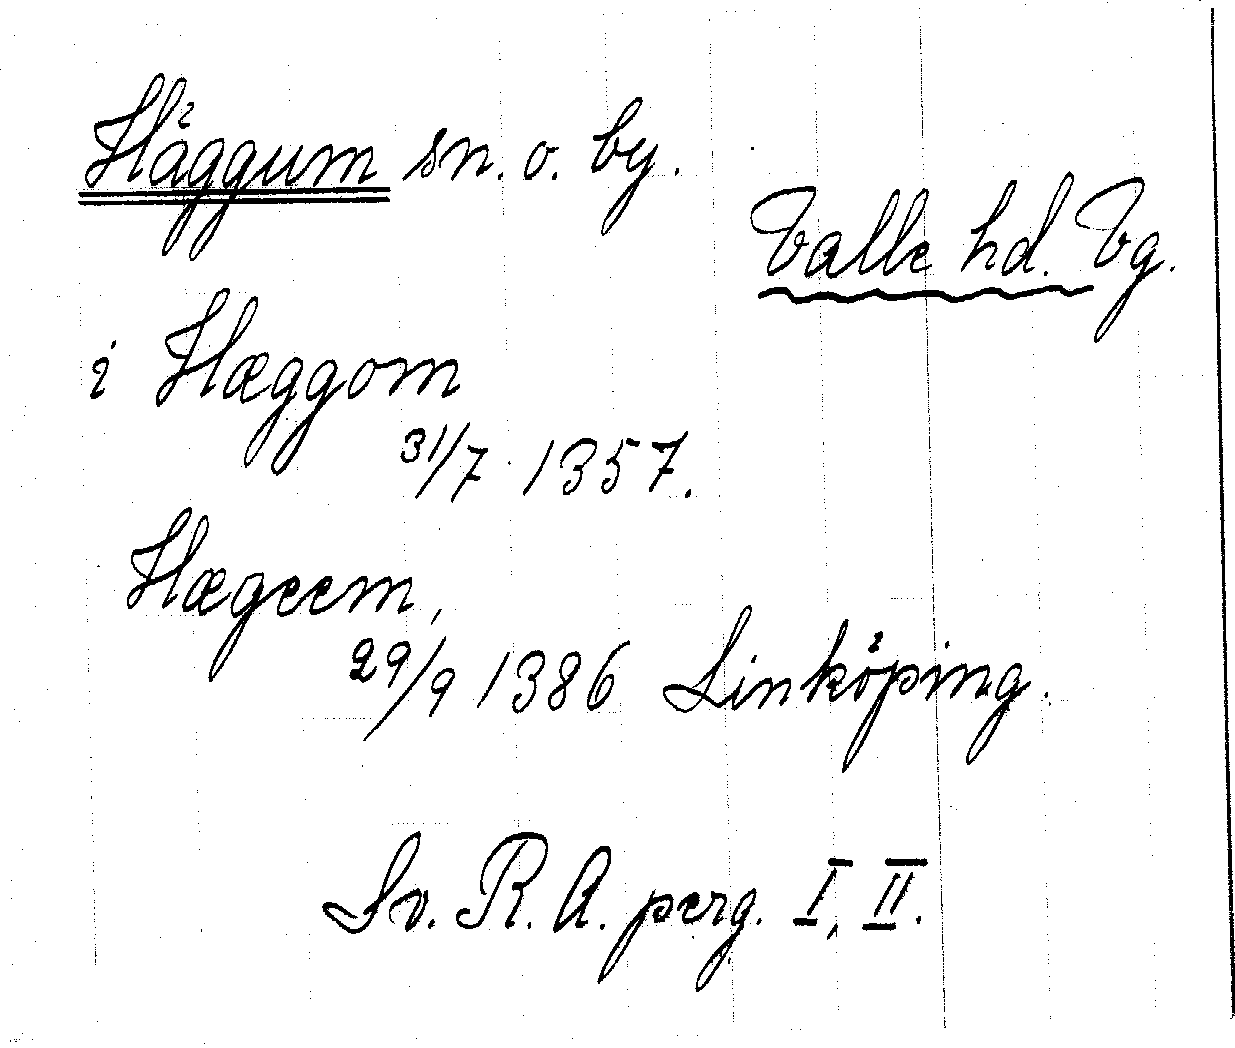 Häggum sn. o. by.
Valle hd. Vg.
i Hæggom
31/7 1357.
Hægeem,
29/9 1386 Linköping.
Sv. R. A. perg. I, II.